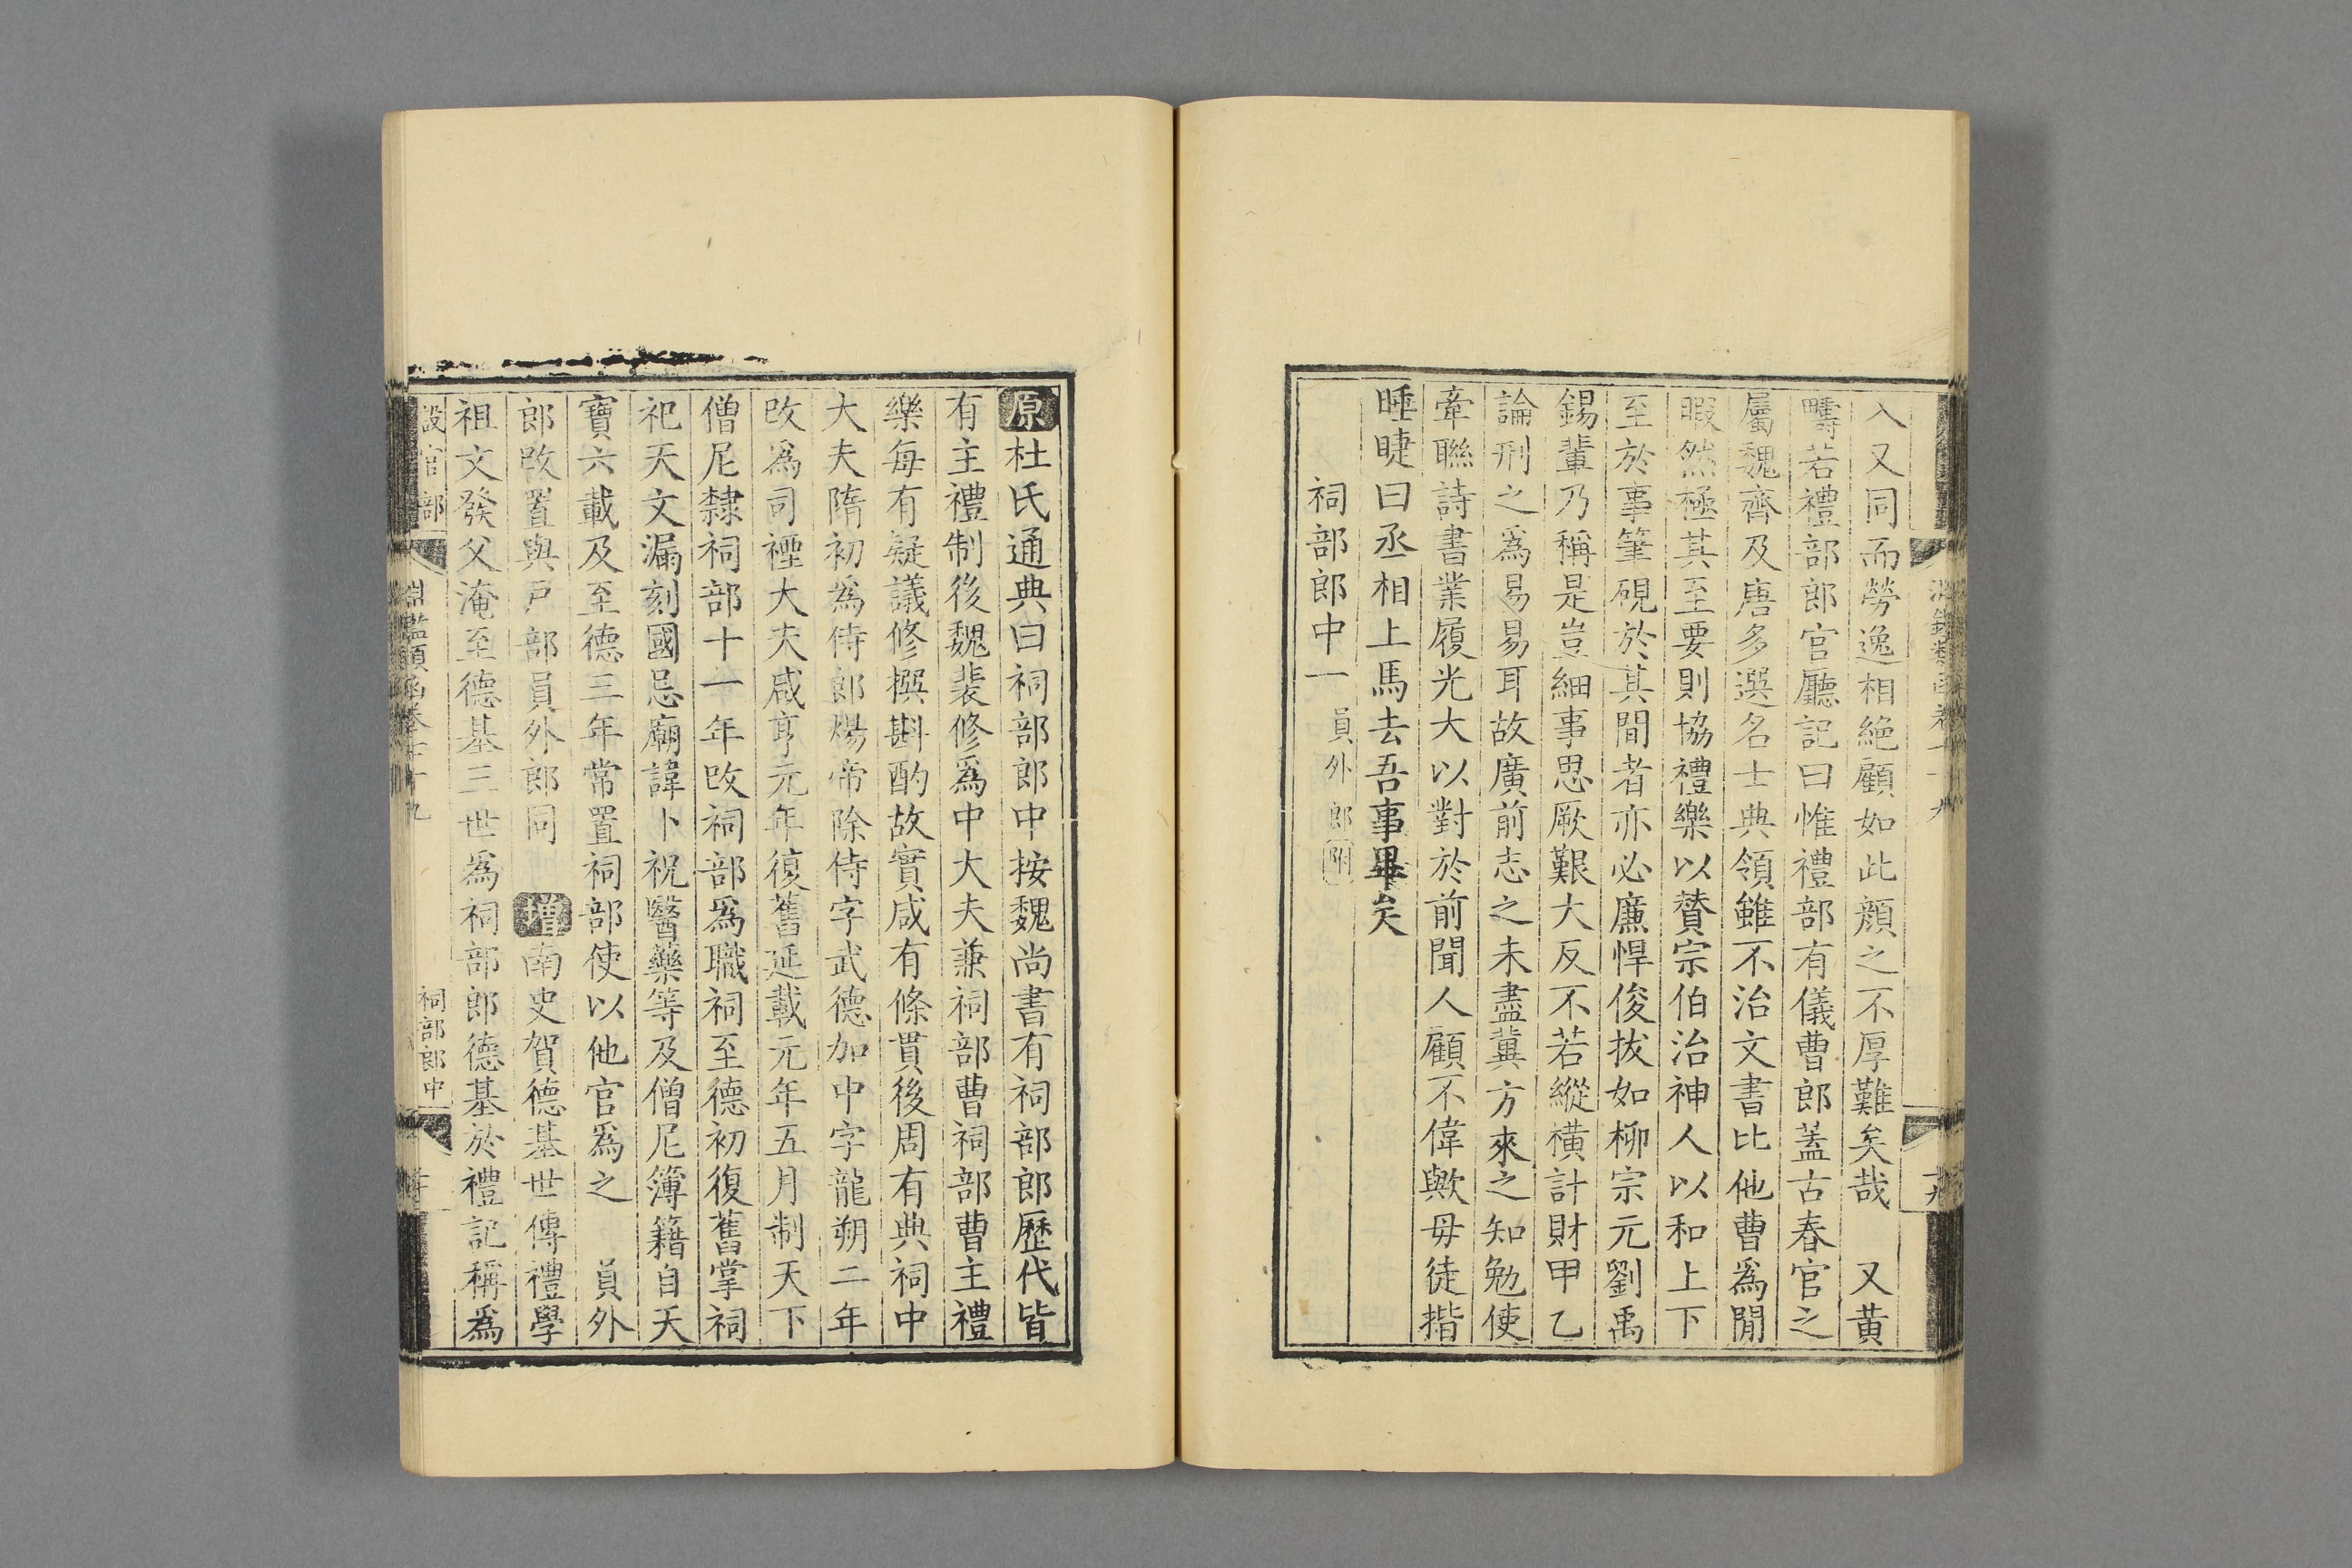 入又同而勞逸相絶顧如此顏之不厚難矣哉　又黃
疇若禮部郎官廳記曰惟禮部有儀曹郎蓋古春官之
屬魏齊及唐多選名士典領雖不治文書比他曹爲閒
暇然極其至要則協禮樂以贊宗伯治神人以和上下
至於事筆硯於其間者亦必廉悍俊拔如柳宗元劉禹
錫輩乃稱是豈細事思厥艱大反不若縱橫計財甲乙
論刑之爲易易耳故廣前志之未盡冀方來之知勉使
牽聯詩書業履光大以對於前聞人顧不偉歟毋徒揩
睡睫曰丞相上馬去吾事畢矣
祠部郎中一　員外郎附
原杜氏通典曰祠部郎中按魏尚書有祠部郎歷代皆
有主禮制後魏裴修爲中大夫兼祠部曹祠部曹主禮
樂每有疑議修撰斟酌故實咸有條貫後周有典祠中
大夫隋初爲侍郎煬帝除侍字武德加中字龍朔二年
改爲司禋大夫咸亨元年復舊延載元年五月制天下
僧尼隸祠部十一年改祠部爲職祠至德初復舊掌祠
祀天文漏刻國忌廟諱卜祝醫藥等及僧尼簿籍自天
寶六載及至德三年常置祠部使以他官爲之　員外
郎改置與戸部員外郎同　增南史賀德基世傳禮學
祖文發父淹至德基三世爲祠部郎德基於禮記稱爲
設官部
淵鑑類函卷七十九
祠部郎中